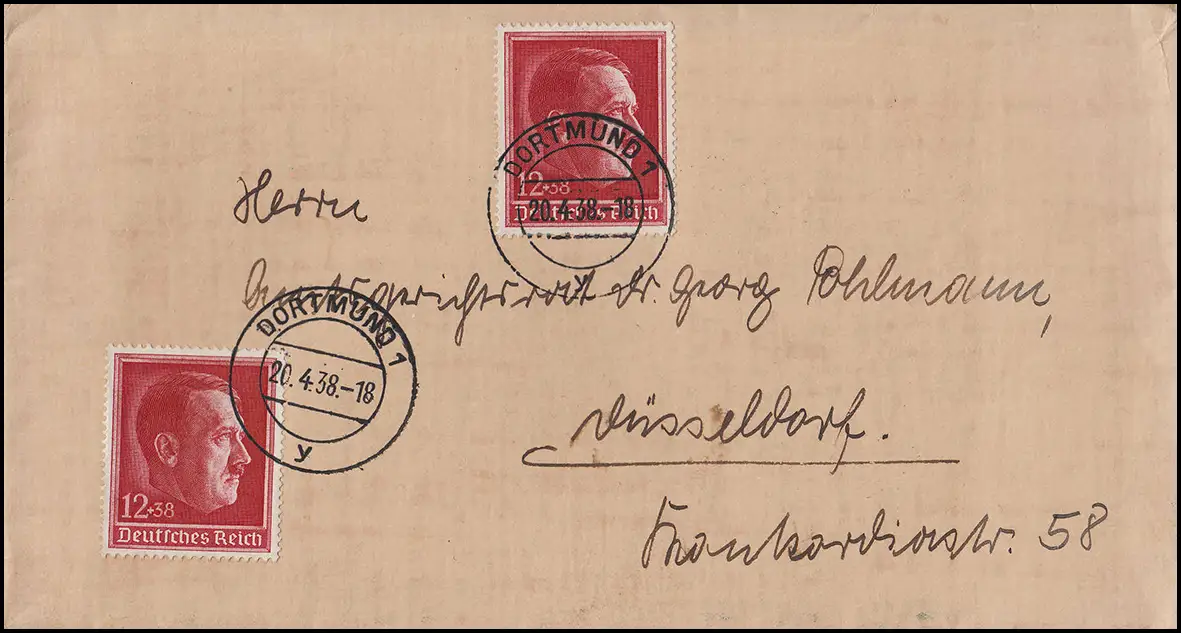 12+38
Deutsches Reich
DORTMUND 1
20.4.38.-18
y
Herrn
Amtsgerichtsrat Dr. Georg Pohlmann,
DORTMUND 1
20.4.38.-18
y
12+38
Deutsches Reich
Düsseldorf.
58